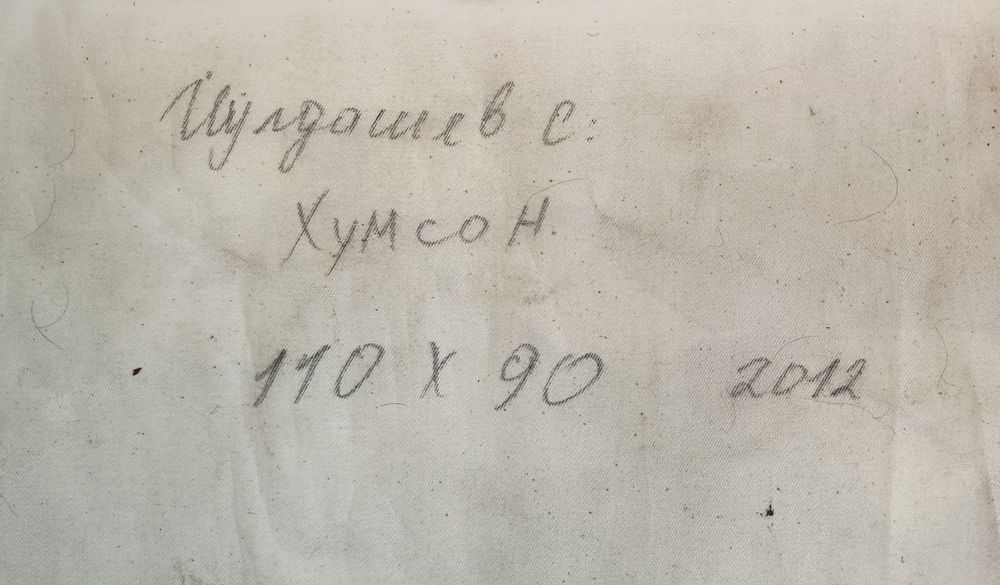 Йўлдошев С:
Хумсон.
110 х 90 2012